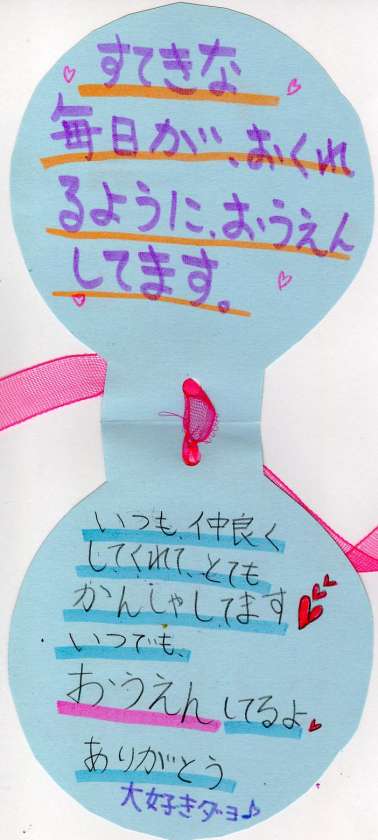 すてきな
毎日が、おくれ
るように、おうえん
してます。
いつも、仲良く
してくれて、とても
かんしゃしてます
いつでも、
おうえんしてるよ
ありがとう
大好きダヨ♪